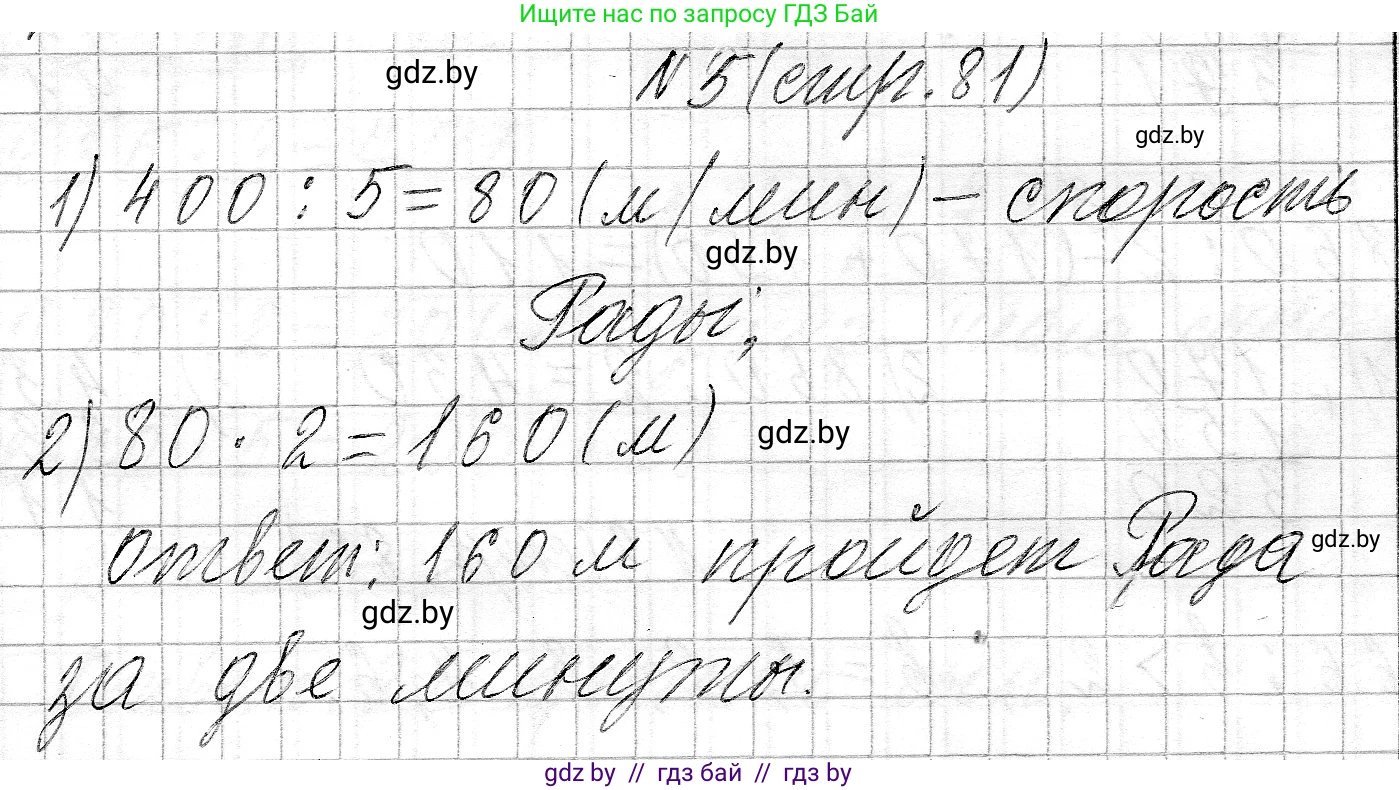 Ищите нас по запросу ГДЗ Бай
№5 (стр. 81)
gdz.by
gdz.by
1) 400 : 5 = 80 (м/мин) – скорость
gdz.by
Рады;
2) 80 · 2 = 160 (м)
gdz.by
ответ: 160 м пройдет Рада
gdz.by
gdz.by
за две минуты.
gdz by // гдз бай // гдз by